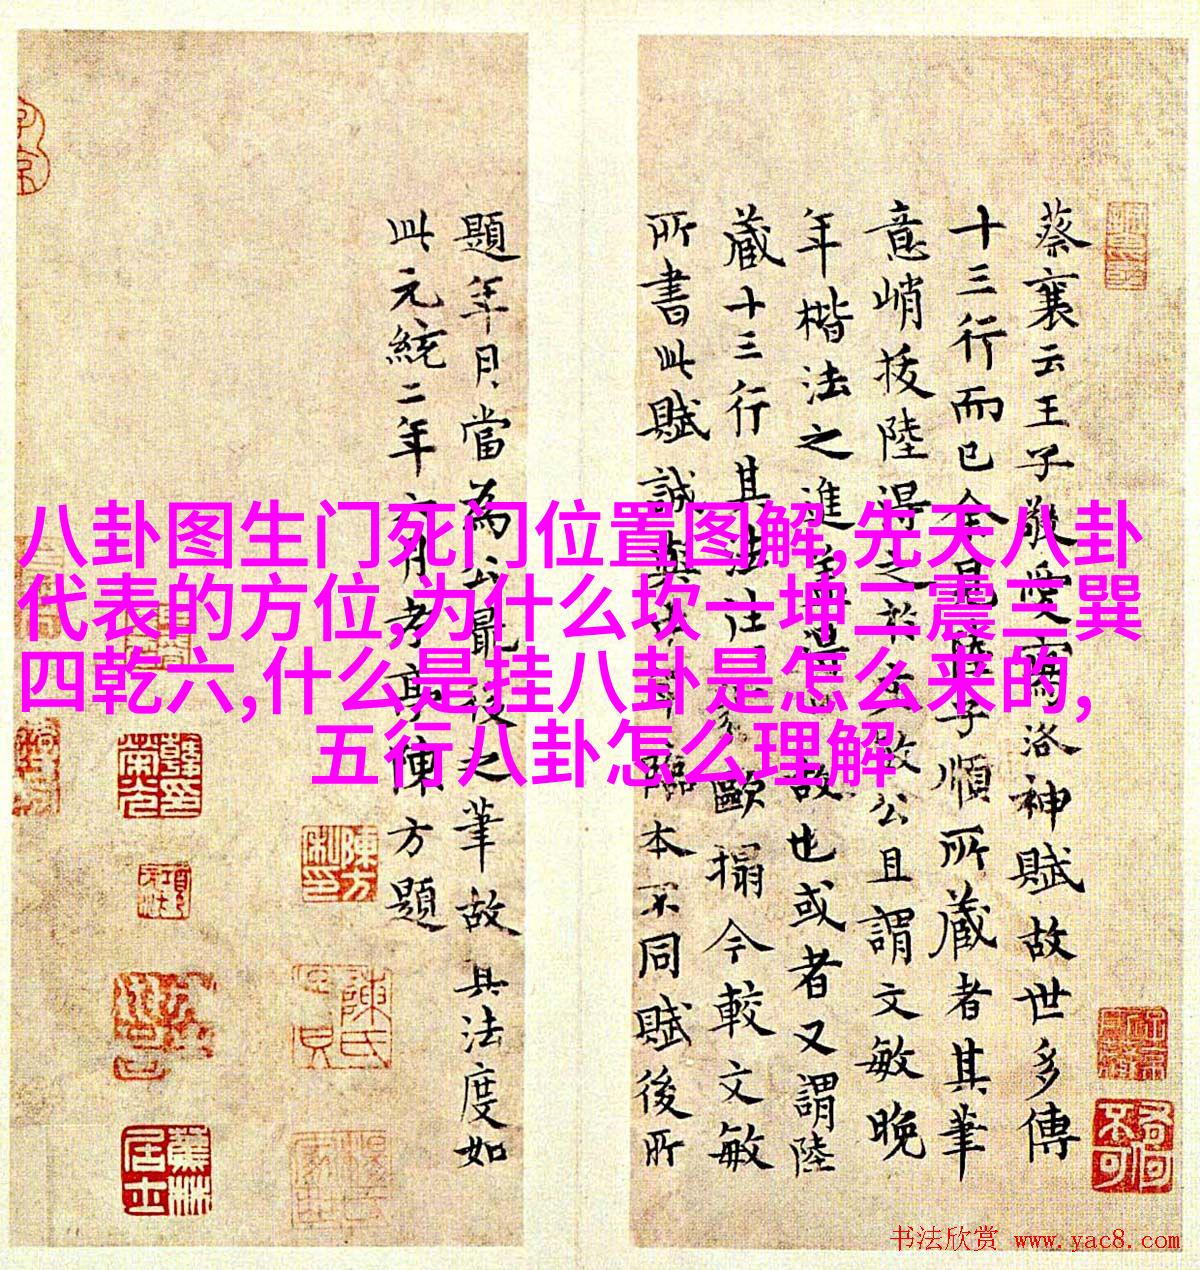 八卦图生门死门位置图解,先天八卦
代表的方位,为什么坎一坤二震三巽
四乾六,什么是挂八卦是怎么来的,
五行八卦怎么理解
蔡襄云王子敬愛寫洛神賦故世多傳
十三行而已余子順所藏者其筆
意峭拔陸得之於故公且謂文敏晚
年楷法之進故也或者又謂陸
藏十三行其法歐搨今較文敏
所書此賦誠與臨本不同賦後所
題年月當為公最後之筆故其法度如
此元統二年六月陳方題
陳方私印
陳氏
蕉林居士
书法欣赏 www.yac8.com